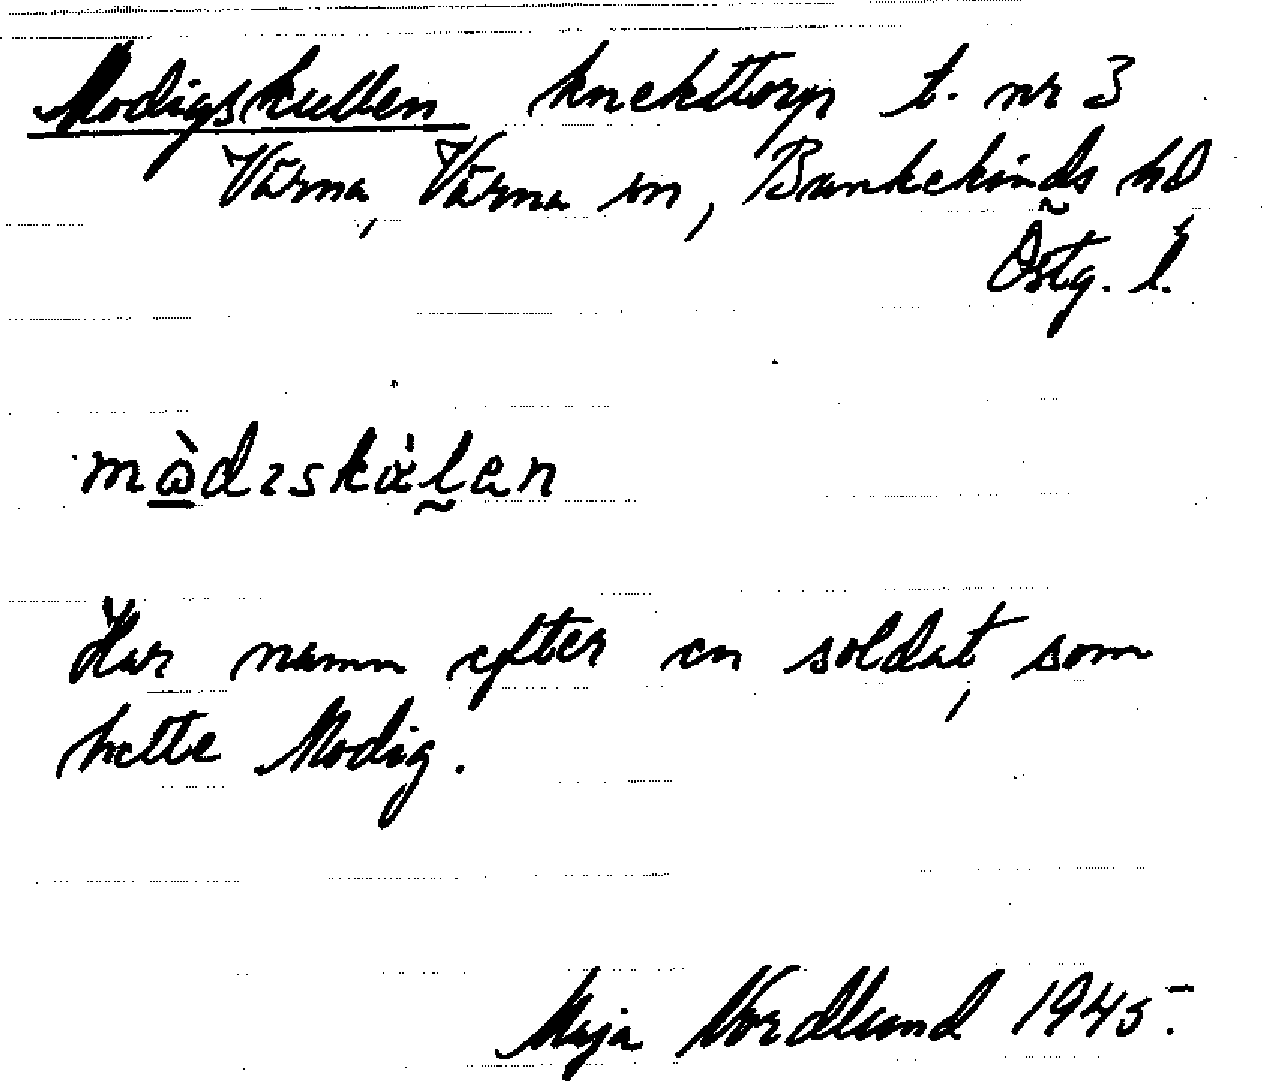 Modigskullen knekttorp t. nr 3
Värna, Värna sn, Bankekinds hd
Östg. l.
mὼdɩskàl̰an
Har namn efter en soldat, som
hette Modig.
Maja Nordlund 1945.